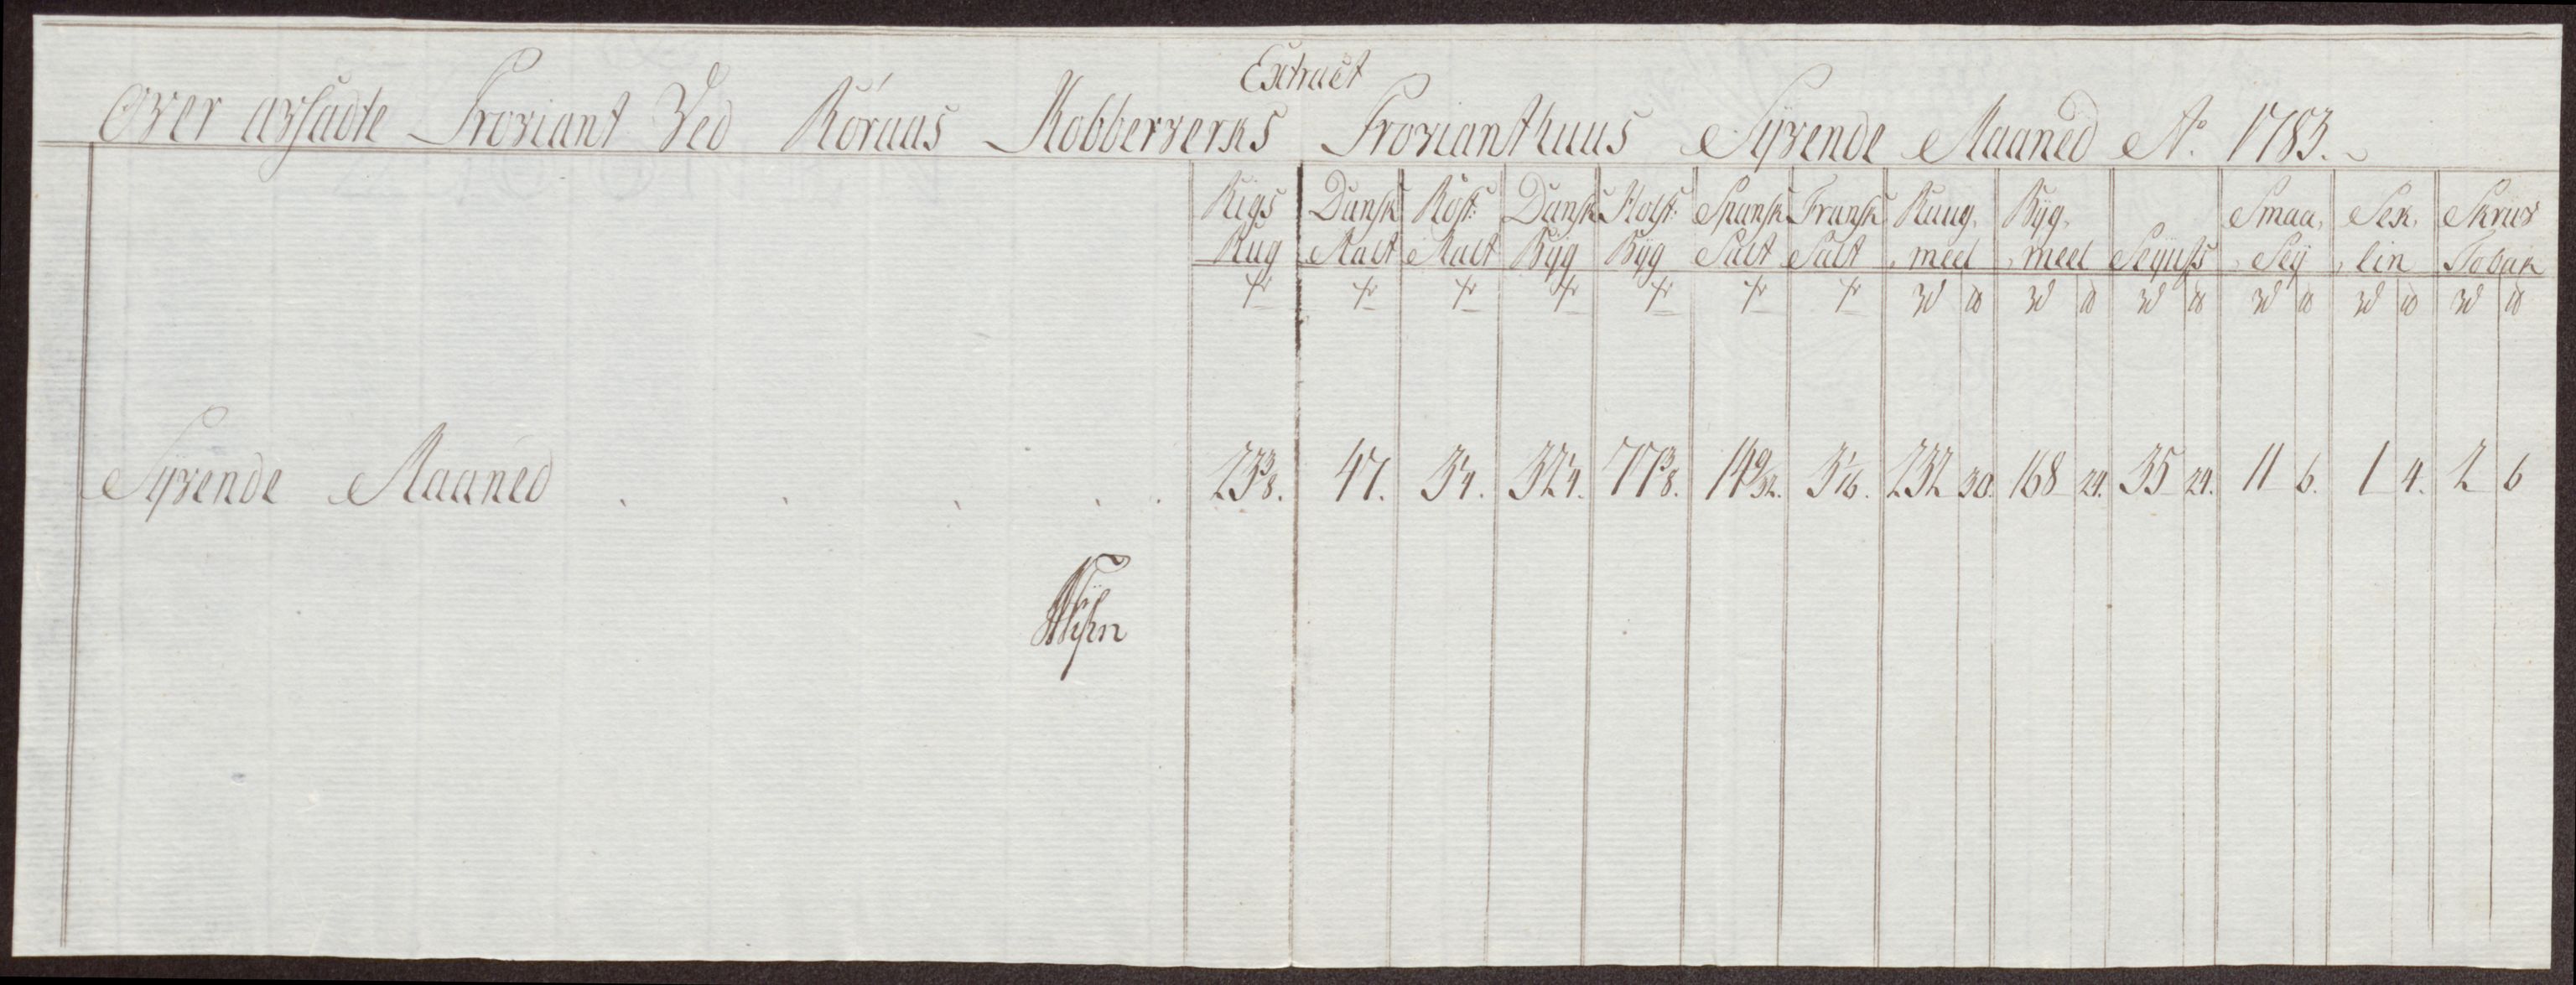 Extract
Over avsadte Proviant Ved Röraas Kobberverks Provianthuus Syvende Maaned Ao 1783.
Rigs Rug | Dansk Malt | Rost: Malt | Dansk Byg | Holst: Byg | Spansk Salt | Fransk Salt | Ruug, meel | Byg, meel | | Smaa, Sey | Sex, lin | Skruv Tobak
Syvende Maaned . . . . . 23 3/8. | 47. | 3 1/4. | 32 1/4. | 77 3/8. | 14 9/32. | 3 1/16. | 232 30. | 168 24. | 35 24. | 11 6. | 1 4. | 2 6